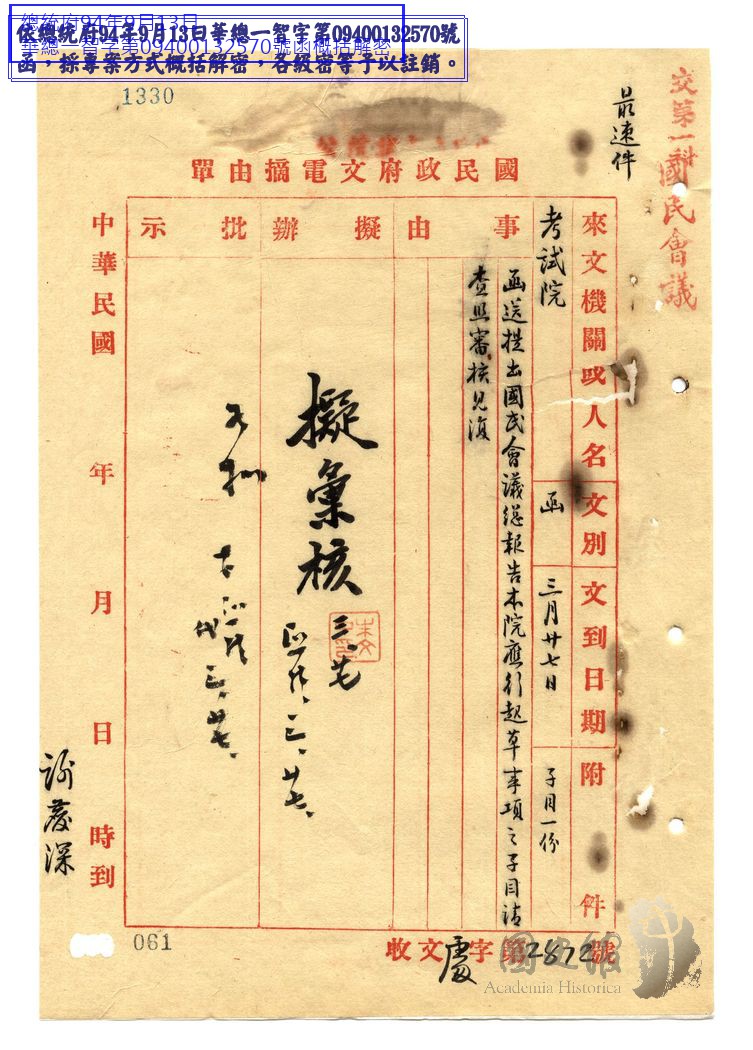 總統府94年9月13日
華總一智字第09400132570號函概括解密
依總統府94年9月13日華總一智字第09400132570號
函，採專案方式概括解密，各級密等予以註銷。
1330
交第一科
國民會議
最速件
國民政府文電摘由單
來文機關或人名
考試院
文別
函
文到日期
三月廿七日
附件
子目一份
事由
函送提出國民會議總報告本院應行起草事項之子目請
查照審核見復
擬辦
擬彙核
三、廿七
批示
中華民國 年 月 日 時到
收文處字第2872號
061
國史館
Academia Historica